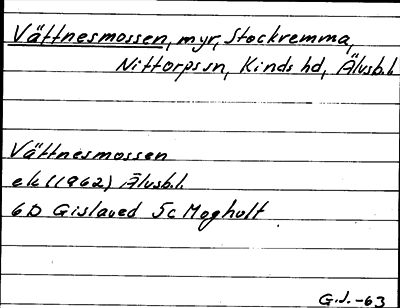 Vättnesmossen, myr, Stockremma,
Nittorps sn, Kinds hd, Älvsb.l.
Vättnesmossen
ek (1962) Älvsb.l.
6D Gislaved 5c Moghult
G.J. -63